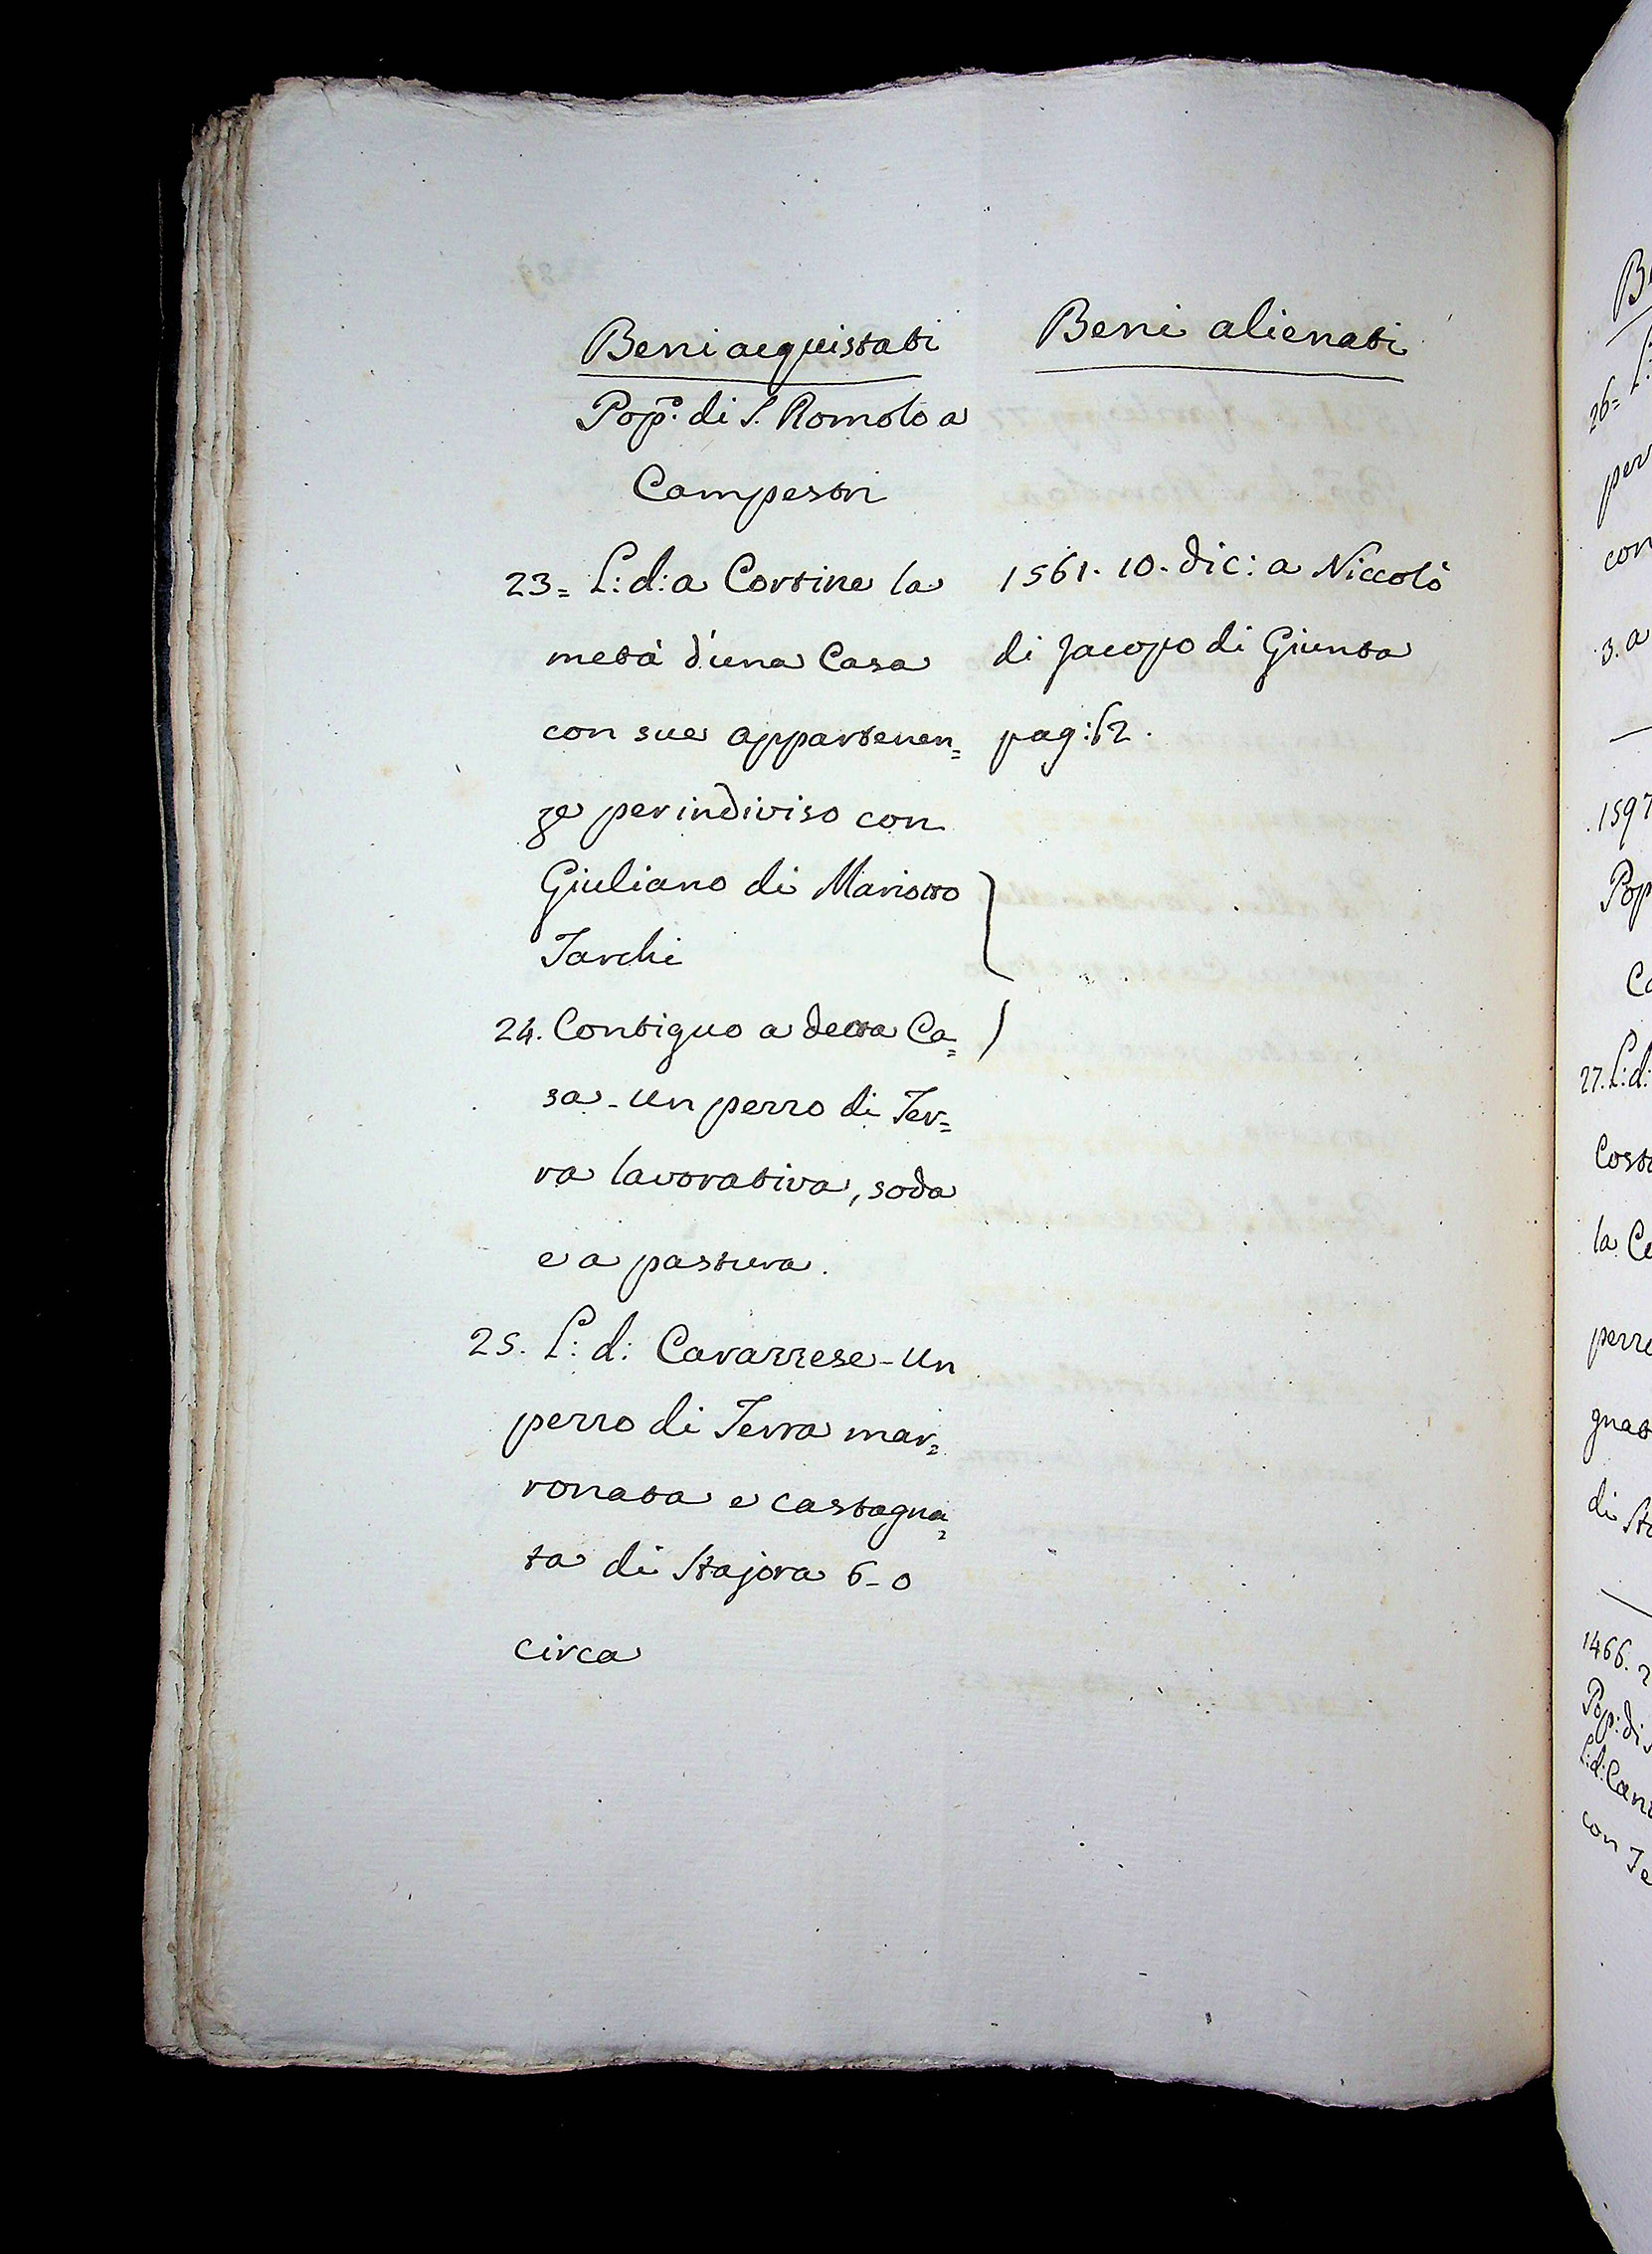 Beni acquistati
Pop.o di S. Romolo a
Campestri
23= L: d: a Cortine la
metà d'una Casa
con sue appartenen=
ze per indiviso con
Giuliano di Mariotto
Tarchi
24. Contiguo a detta Ca=
sa - un pezzo di Ter=
ra lavorativa, soda
e a pastura.
25. L: d: Cavazzese - un
pezzo di Terra mar=
ronata e castagna=
ta di Stajora 6-0
circa
Beni alienati
1561. 10. dic: a Niccolò
di Jacopo di Giunta
pag: 62.
26=
per
con
3. a
1597
Pop
27. L: d:
Costa
la
pezzo
gnat
di Sta
1466. 2
Pop: di
L: d:
con Te